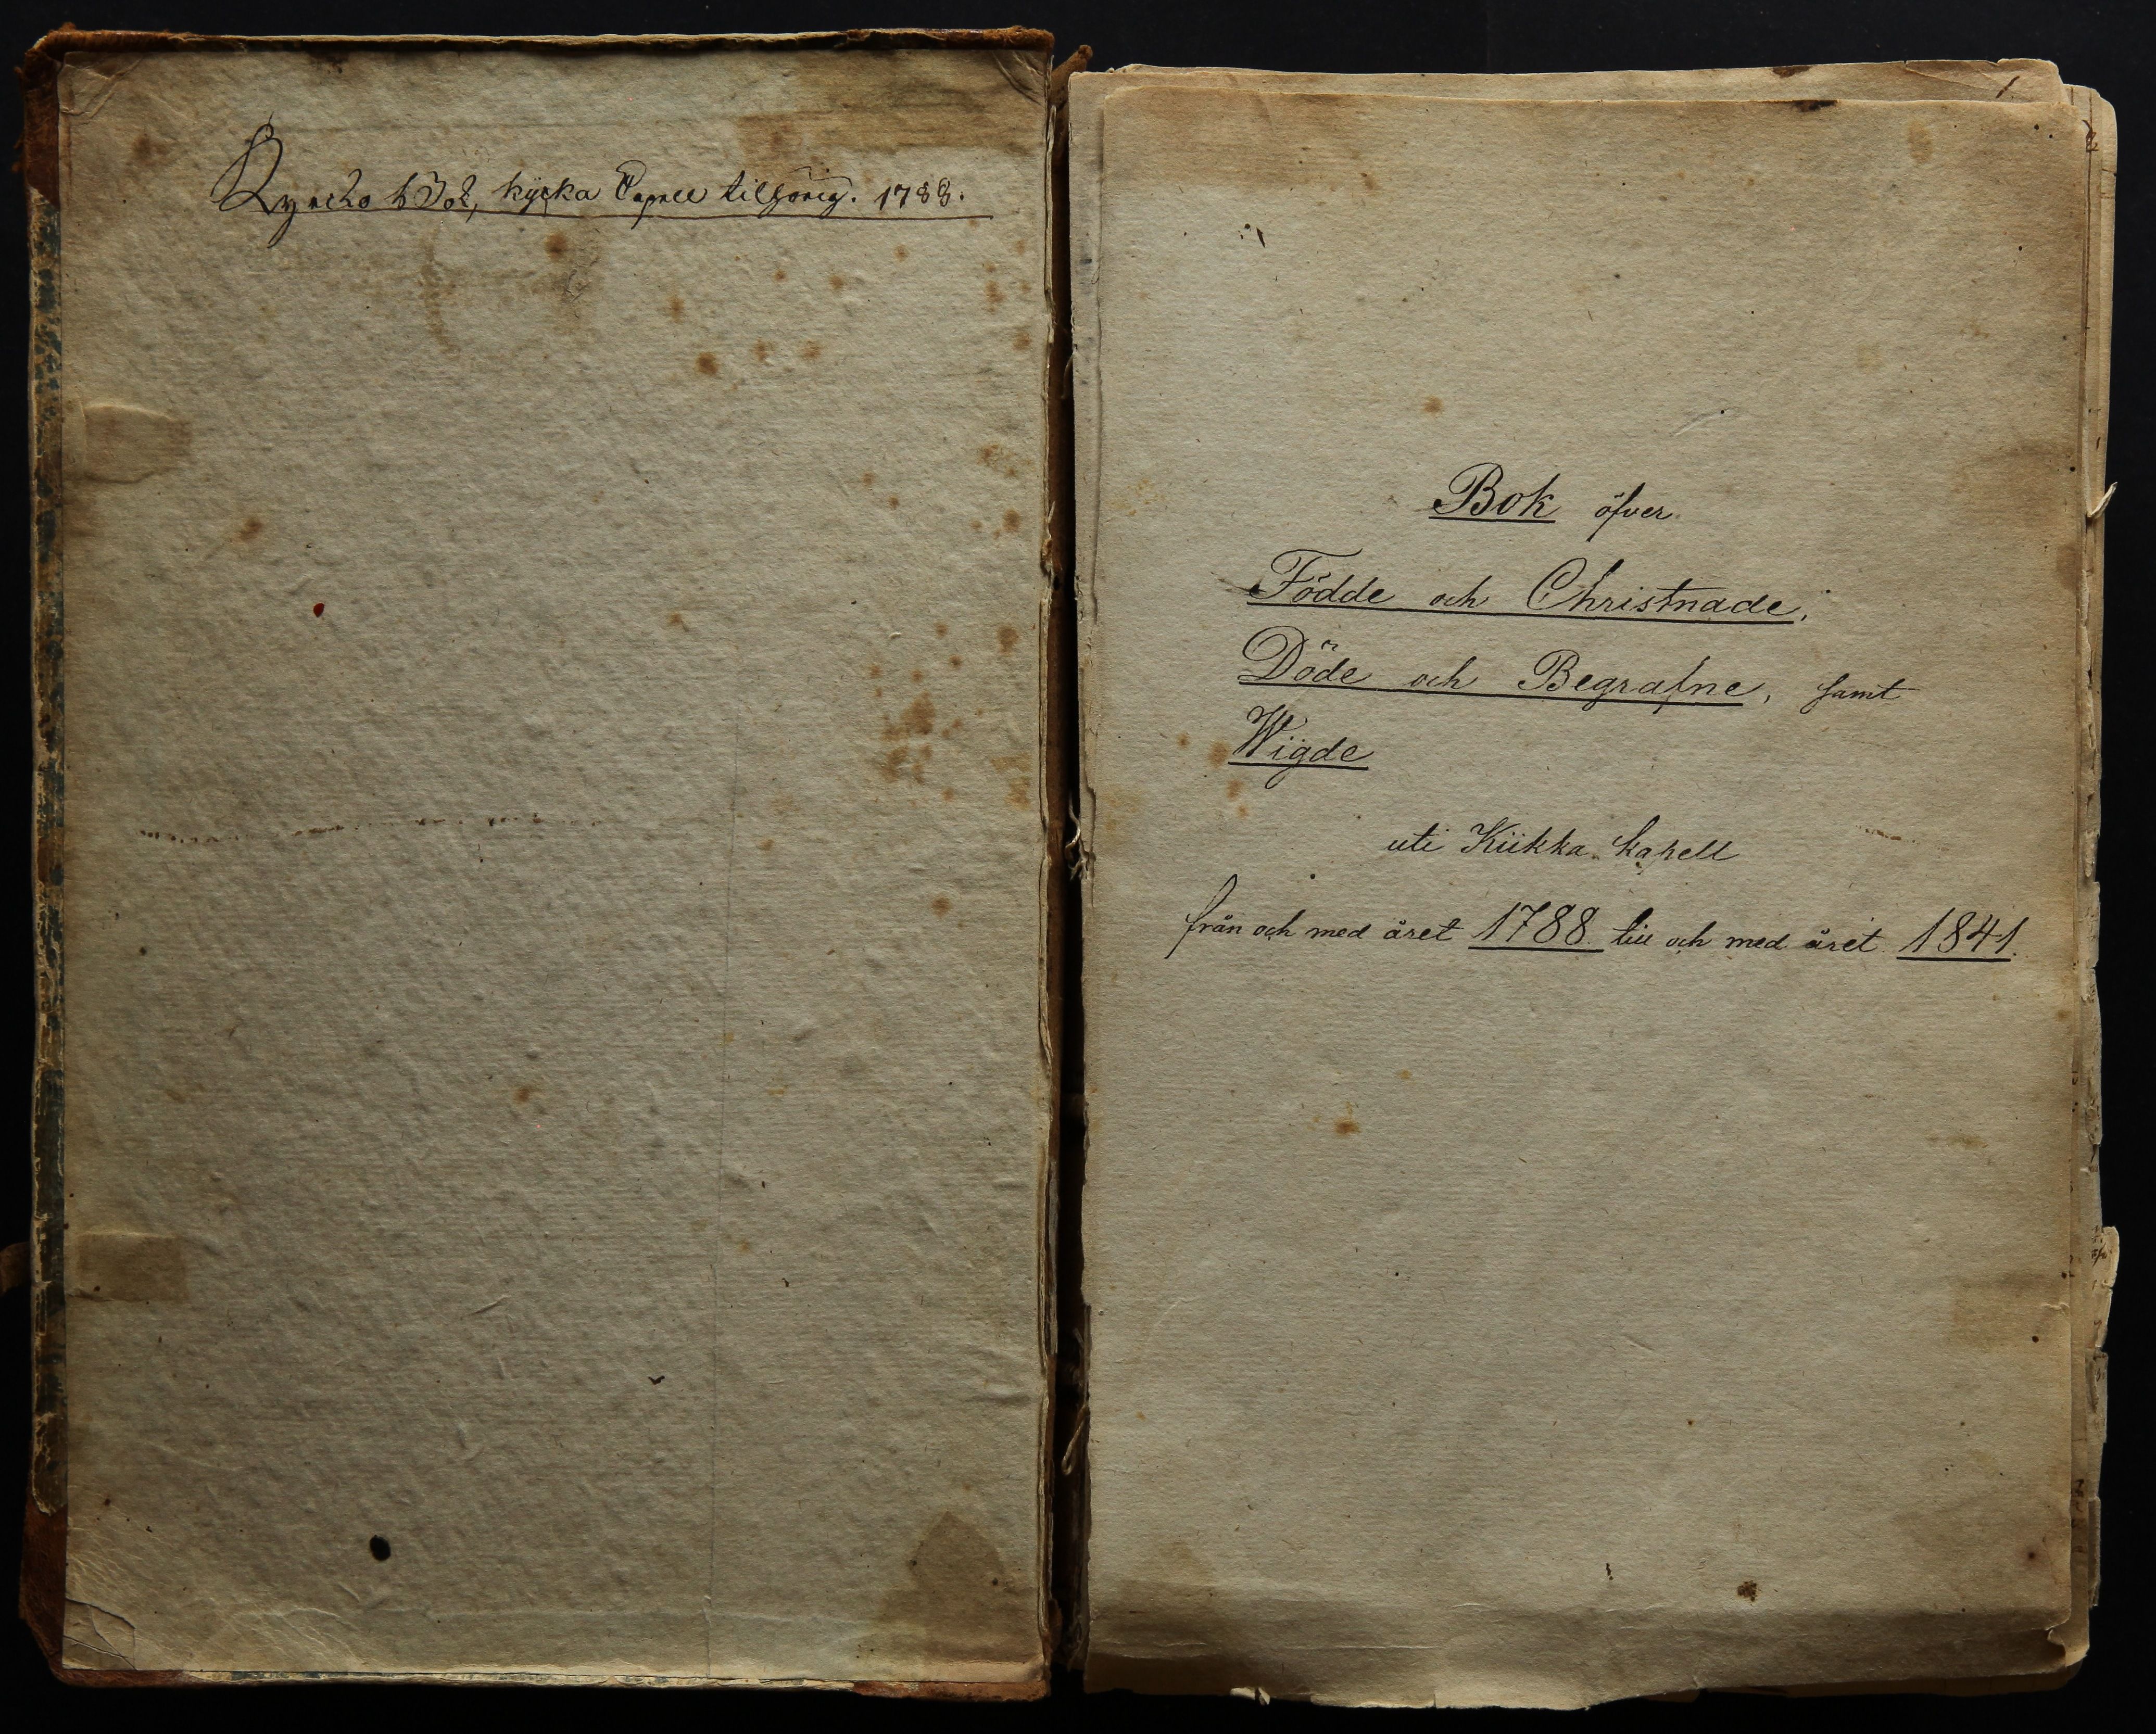 Kyrcko bok, kycka Capell tilhörig. 1788.
1.
Bok öfver
Födde och Christnade,
Döde och Begrafne, samt
Wigde
uti Kiikka kapell
från och med året 1788 till och med året 1841.